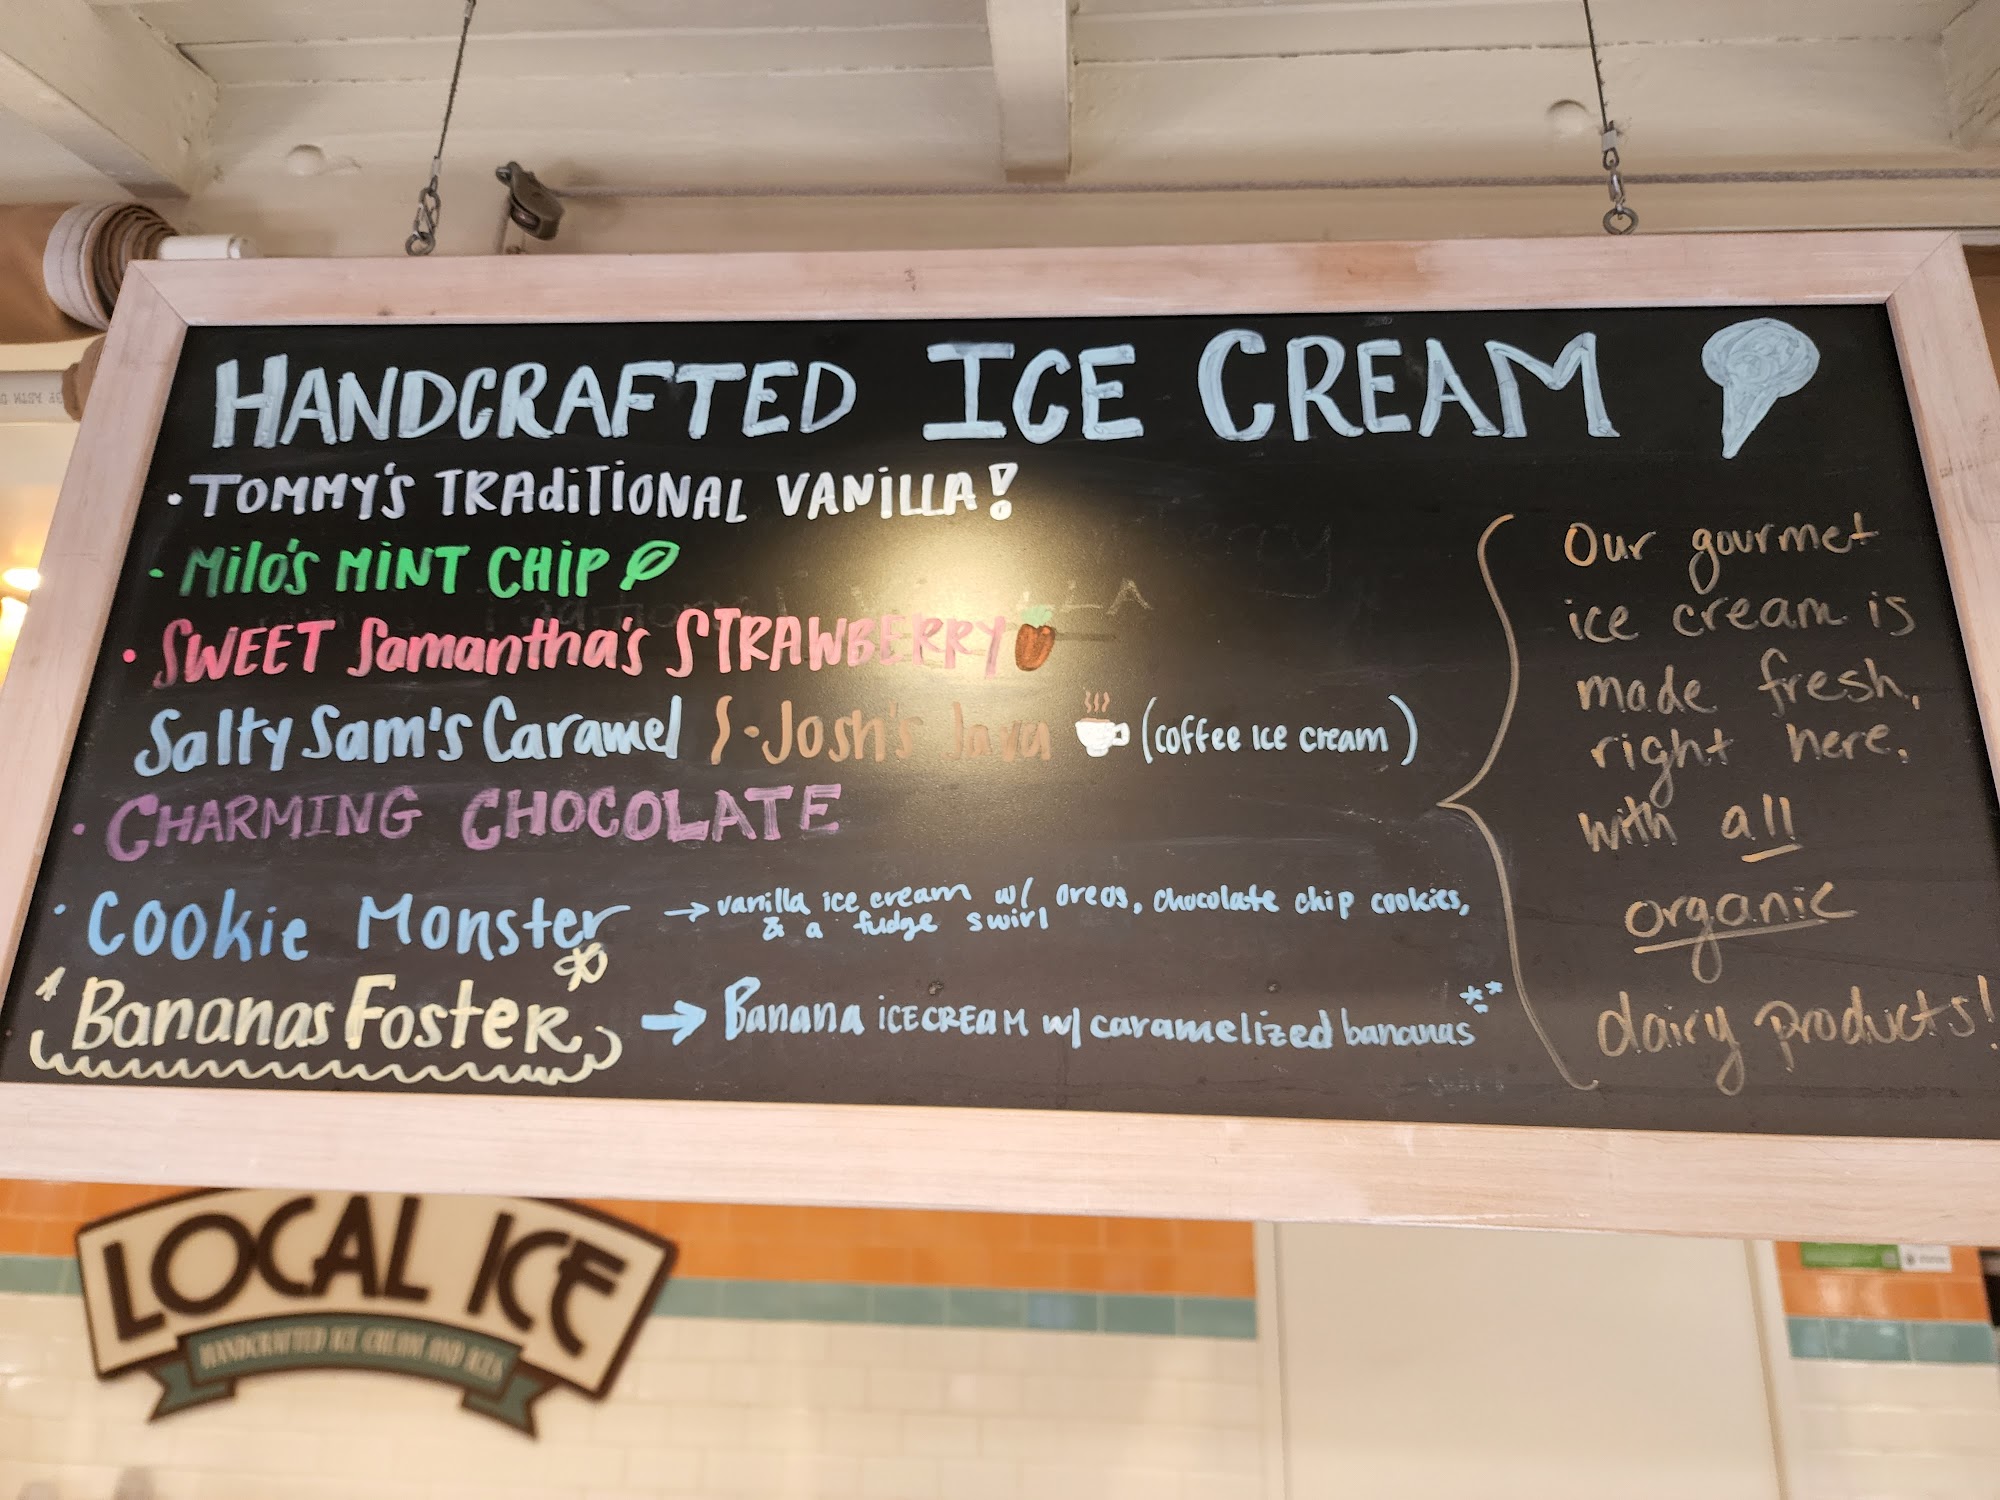 HANDCRAFTED ICE CREAM
• TOMMY'S TRADITIONAL VANILLA!
• Milo's MINT CHIP
• SWEET Samantha's STRAWBERRY
Salty Sam's Caramel
• Josh's Java (coffee ice cream)
• CHARMING CHOCOLATE
• Cookie Monster → vanilla ice cream w/ oreos, chocolate chip cookies,
& a fudge swirl
Bananas Foster → Banana ICE CREAM w/ caramelized bananas
Our gourmet
ice cream is
made fresh,
right here,
with all
organic
dairy products!
LOCAL ICE
HANDCRAFTED ICE CREAM AND ICES